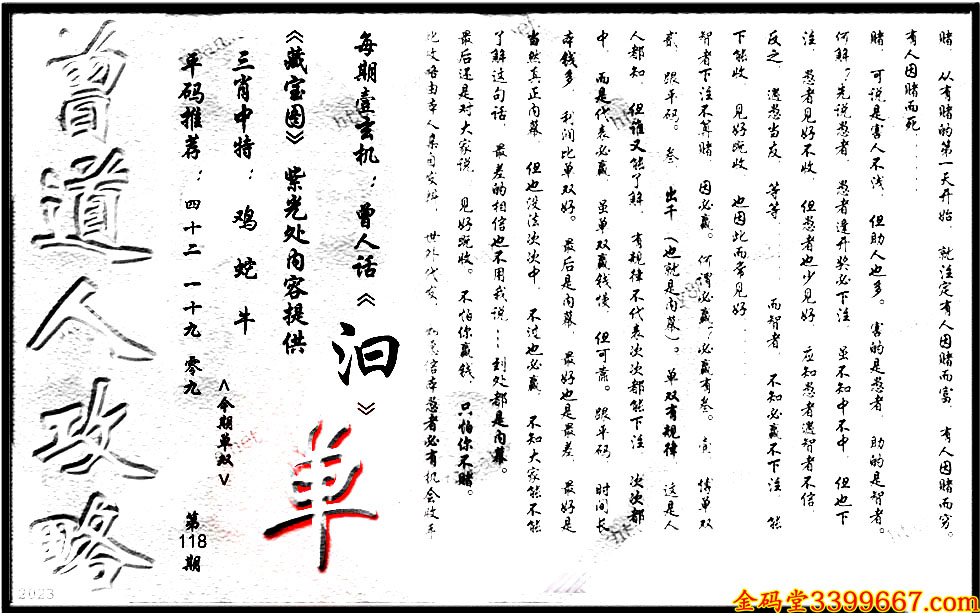 赌，从有赌的第一天开始，就注定有人因赌而富，有人因赌而穷。
有人因赌而死......
赌，可说是害人不浅，但助人也多。害的是愚者，助的是智者。
何解？先说愚者，愚者逢开奖必下注，虽不知中不中，但也下
注，愚者见好不收，但愚者也少见好，应知愚者遇智者不信，
反之，遇愚当友，等等......而智者，不知必赢不下注，能
下能收，见好就收，也因此而常见好......
智者下注不算赌，因必赢。何谓必赢？必赢有叁。壹，博单双
贰，跟平码。叁，出千（也就是内幕）。单双有规律，这是人
人都知，但谁又能了解，有规律不代表次次都能下注，次次都
中，而是代表必赢，虽单双赢钱慢，但可靠。跟平码，时间长
本钱多，利润比单双好。最后是内幕，最好也是最差，最好是
当然真正内幕，但也没法次次中，不过也必赢，不知大家能不能
了解这句话，最差的相信也不用我说...到处都是内幕。
最后还是对大家说，见好就收。不怕你赢钱，只怕你不赌。
每期壹玄机：曾人话《汩》
《藏宝图》紫光处内容提供
三肖中特：鸡 蛇 牛
平码推荐：四十二 一十九 零九
<今期单双>
单
第
118
期
曾道人攻略
2023
金码堂3399667.com